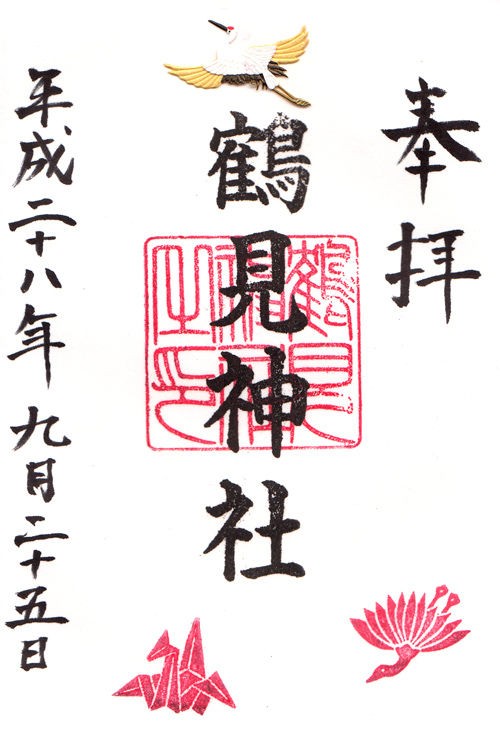 奉拝
鶴見神社
鶴見神社之印
平成二十八年九月二十五日